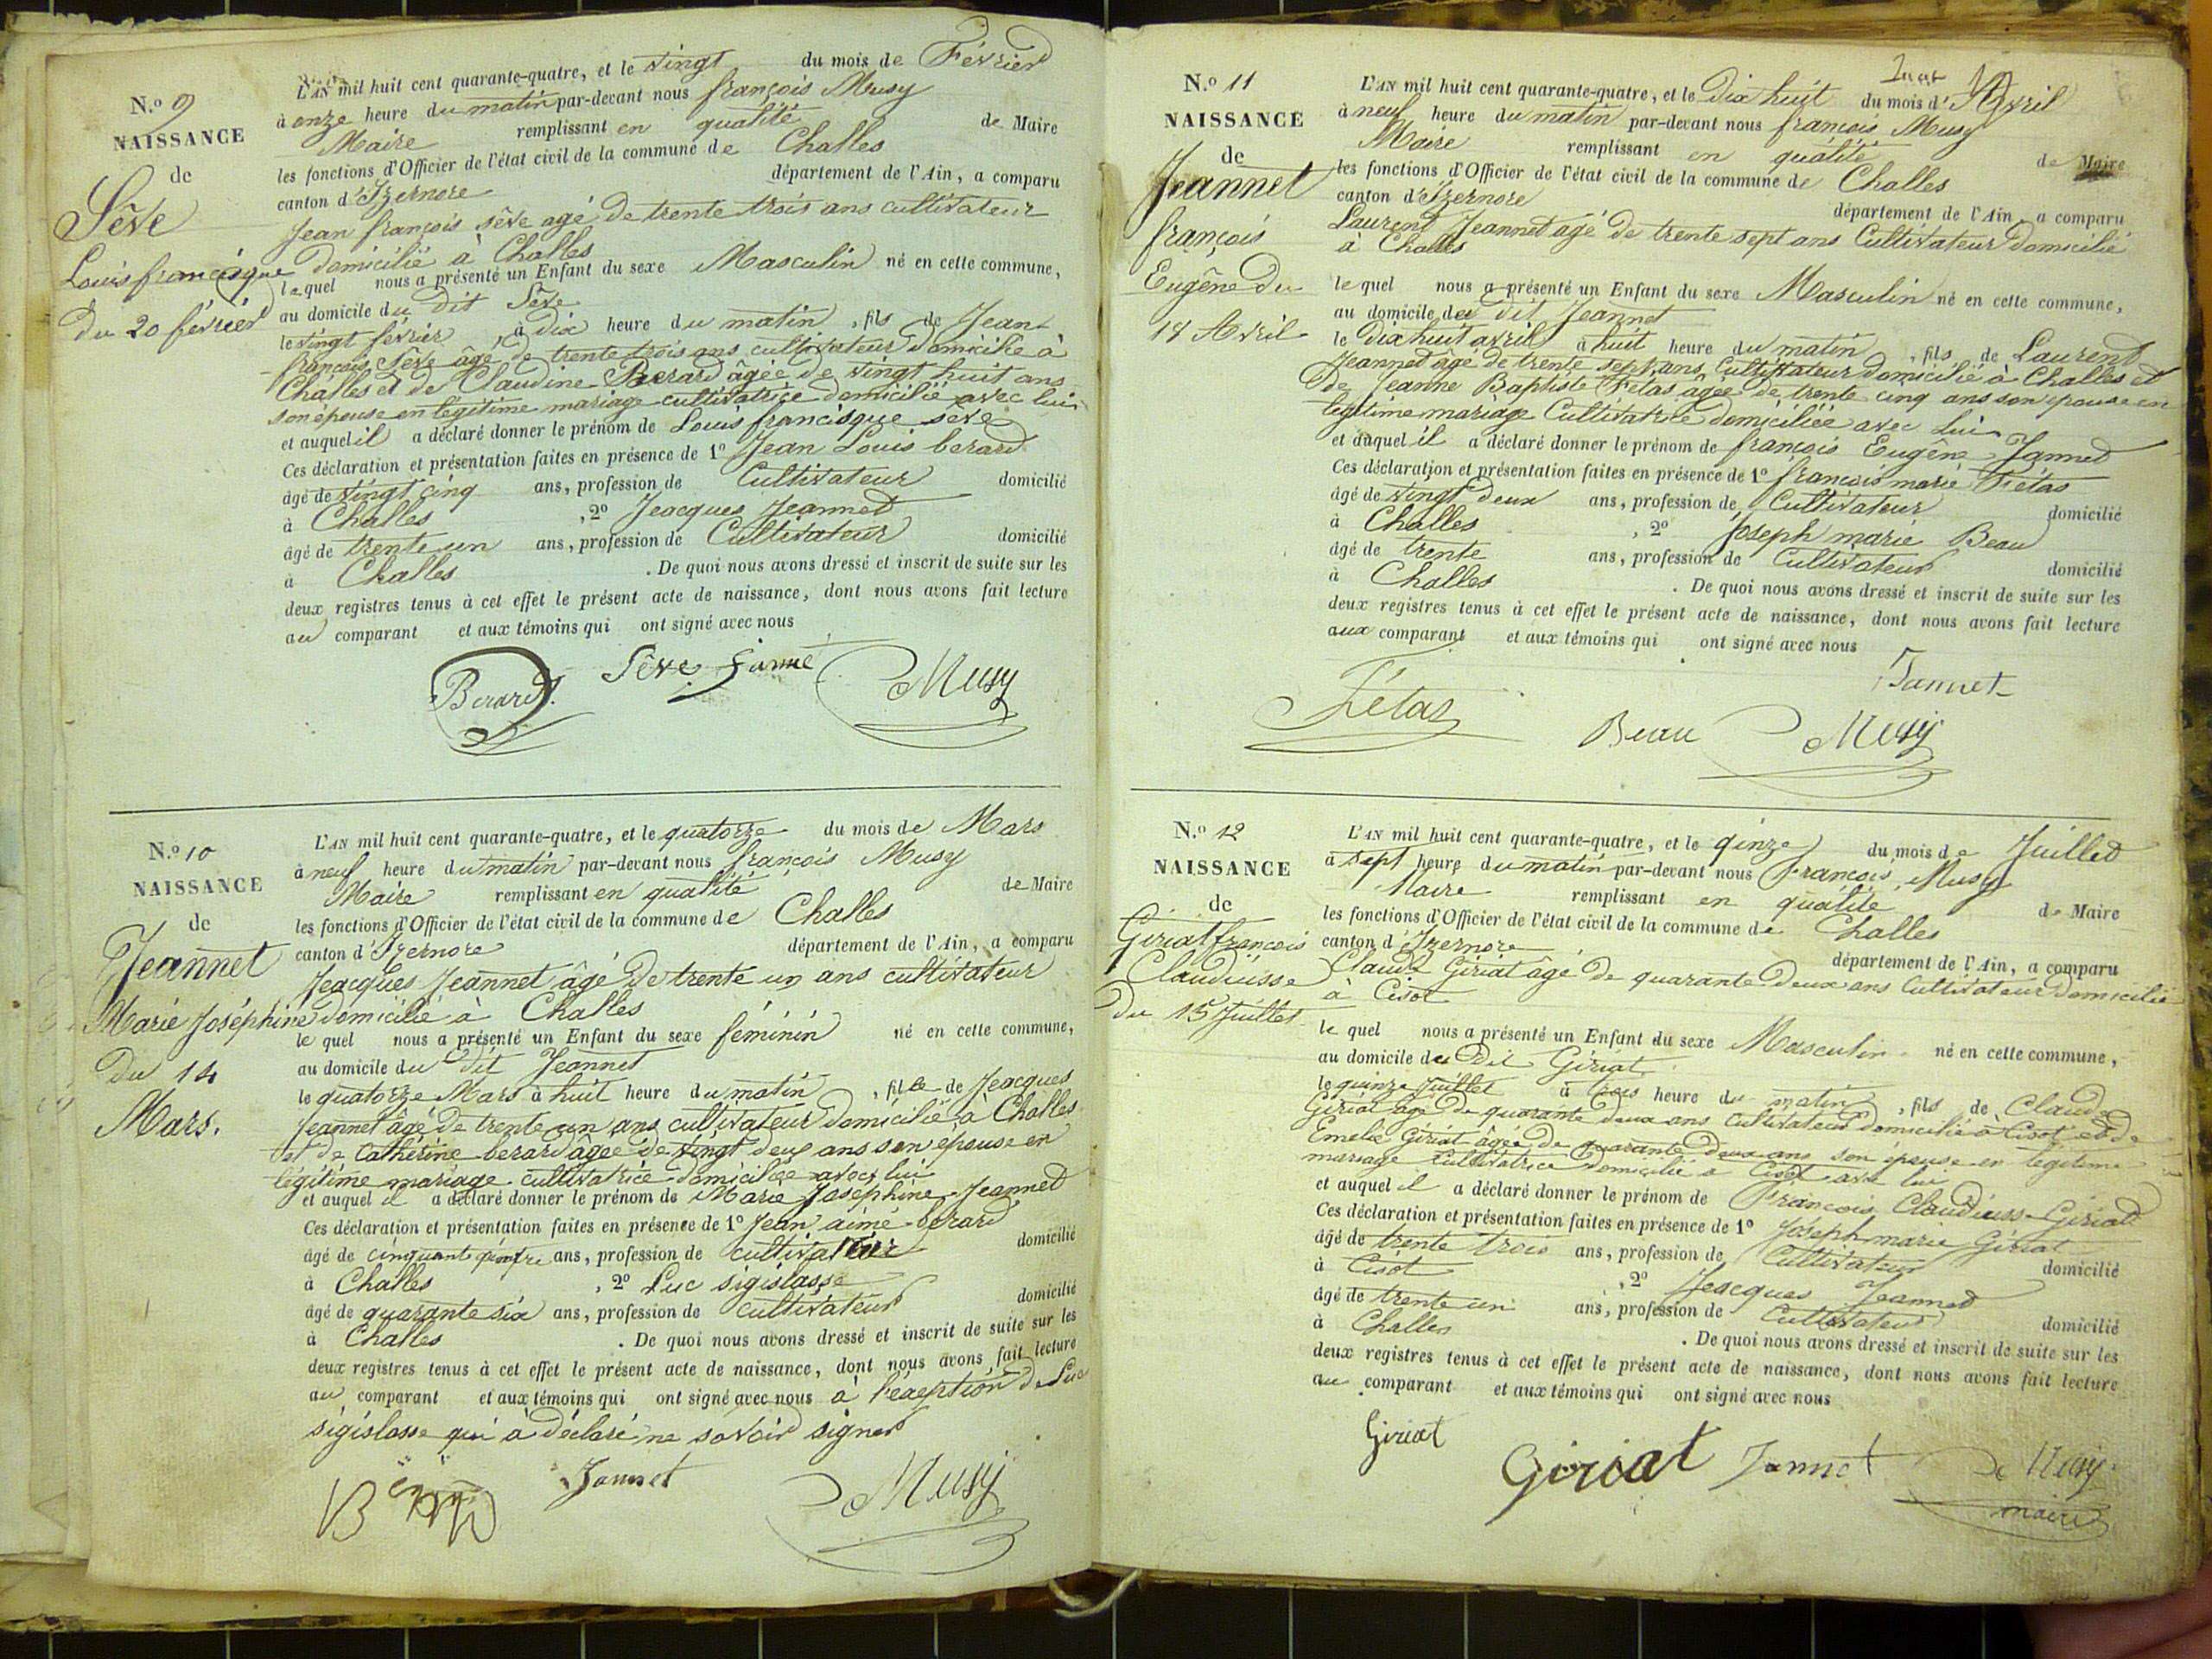 N.o 9
NAISSANCE
de
Sêve
Louis francisque
du 20 février
L'AN mil huit cent quarante-quatre, et le vingt du mois de Février
à onze heure du matin par-devant nous françois Musy
Maire remplissant en qualité de Maire
les fonctions d'Officier de l'état civil de la commune de Challes
canton d'Izernore département de l'Ain, a comparu
Jean françois sêve agé de trente trois ans cultivateur
domicilié à Challes
lequel nous a présenté un Enfant du sexe Masculin né en cette commune,
au domicile du dit Sêve
le vingt février à dix heure du matin, fils de Jean
françois Sêve âgé de trente trois ans cultivateur domicilié à
Challes et de Claudine Berard âgée de vingt huit ans
son épouse en légitime mariage cultivatrice domicilié avec lui
et auquel il a déclaré donner le prénom de Louis francisque sêve
Ces déclaration et présentation faites en présence de 1o Jean Louis berard
âgé de vingt cinq ans, profession de Cultivateur domicilié
à Challes, 2o Jeacques Jeannet
âgé de trente un ans, profession de Cultivateur domicilié
à Challes. De quoi nous avons dressé et inscrit de suite sur les
deux registres tenus à cet effet le présent acte de naissance, dont nous avons fait lecture
au comparant et aux témoins qui ont signé avec nous
Berard Sêve Janne Musy
N.o 10
NAISSANCE
de
Jeannet
Marie Joséphine
Du 14
Mars.
L'AN mil huit cent quarante-quatre, et le quatorze du mois de Mars
à neuf heure du matin par-devant nous françois Musy
Maire remplissant en qualité de Maire
les fonctions d'Officier de l'état civil de la commune de Challes
canton d'Izernore département de l'Ain, a comparu
Jeacques Jeannet âgé de trente un ans cultivateur
domicilié à Challes
le quel nous a présenté un Enfant du sexe féminin né en cette commune,
au domicile du dit Jeannet
le quatorze Mars à huit heure du matin, fille de Jeacques
Jeannet âgé de trente un ans cultivateur domicilié à Challes
et de Cathérine berard âgée de vingt deux ans son épouse en
légitime mariage cultivatrice domiciliée avec lui
et auquel il a déclaré donner le prénom de Marie Josephine Jeannet
Ces déclaration et présentation faites en présence de 1o Jean aimé berard
âgé de cinquante ans, profession de cultivateur domicilié
à Challes, 2o Luc sigislasse
âgé de quarante six ans, profession de cultivateur domicilié
à Challes. De quoi nous avons dressé et inscrit de suite sur les
deux registres tenus à cet effet le présent acte de naissance, dont nous avons fait lecture
au comparant et aux témoins qui ont signé avec nous à l'éxeption de Luc
sigislasse qui à déclaré ne savoir signer
Jannet Musy
N.o 11
NAISSANCE
de
Jeannet
françois
Eugêne du
18 Avril
L'AN mil huit cent quarante-quatre, et le Dix huit du mois d'Avril
à neuf heure du matin par-devant nous françois Musy
Maire remplissant en qualité de Maire
les fonctions d'Officier de l'état civil de la commune de Challes
canton d'Izernore département de l'Ain, a comparu
Laurent Jeannet agé de trente sept ans Cultivateur domicilié
à Challes
le quel nous a présenté un Enfant du sexe Masculin né en cette commune,
au domicile du dit Jeannet
le Dix huit avril à huit heure du matin, fils de Laurent
Jeannet âgé de trente sept ans Cultivateur domicilié à Challes et
de Jeanne Baptiste Fétas âgée de trente cinq ans son épouse en
légitime mariage Cultivatrice domiciliée avec lui
et auquel il a déclaré donner le prénom de françois Eugêne Jannet
Ces déclaration et présentation faites en présence de 1o françois marie Fétas
âgé de vingt deux ans, profession de Cultivateur domicilié
à Challes, 2o Joseph marie Beau
âgé de trente ans, profession de Cultivateur domicilié
à Challes. De quoi nous avons dressé et inscrit de suite sur les
deux registres tenus à cet effet le présent acte de naissance, dont nous avons fait lecture
aux comparant et aux témoins qui ont signé avec nous
Jannet
Fétas Beau Musy
N.o 12
NAISSANCE
de
Giriat françois
Claudiusse
Du 15 Juillet
L'AN mil huit cent quarante-quatre, et le qinze du mois de Juillet
à sept heure du matin par-devant nous François Musy
Maire remplissant en qualité de Maire
les fonctions d'Officier de l'état civil de la commune de Challes
canton d'Izernore département de l'Ain, a comparu
Claude Giriat âgé de quarante deux ans Cultivateur domicilié
à Cisot
le quel nous a présenté un Enfant du sexe Masculin né en cette commune,
au domicile du dit Giriat
le quinze Juillet à trois heure du matin, fils de Claude
Giriat âgé de quarante deux ans Cultivateur domicilié à Cisot et de
Emelie Giriat âgée de quarante deux ans son épouse en légitime
mariage Cultivatrice domicilié à Cisot avec lui
et auquel il a déclaré donner le prénom de François Claudiuss Giriat
Ces déclaration et présentation faites en présence de 1o Joseph marie Giriat
âgé de trente trois ans, profession de Cultivateur domicilié
à Cisot, 2o Jeacques Jeannet
âgé de trente un ans, profession de Cultivateur domicilié
à Challes. De quoi nous avons dressé et inscrit de suite sur les
deux registres tenus à cet effet le présent acte de naissance, dont nous avons fait lecture
au comparant et aux témoins qui ont signé avec nous
Giriat Giriat Jannet Musy
maire